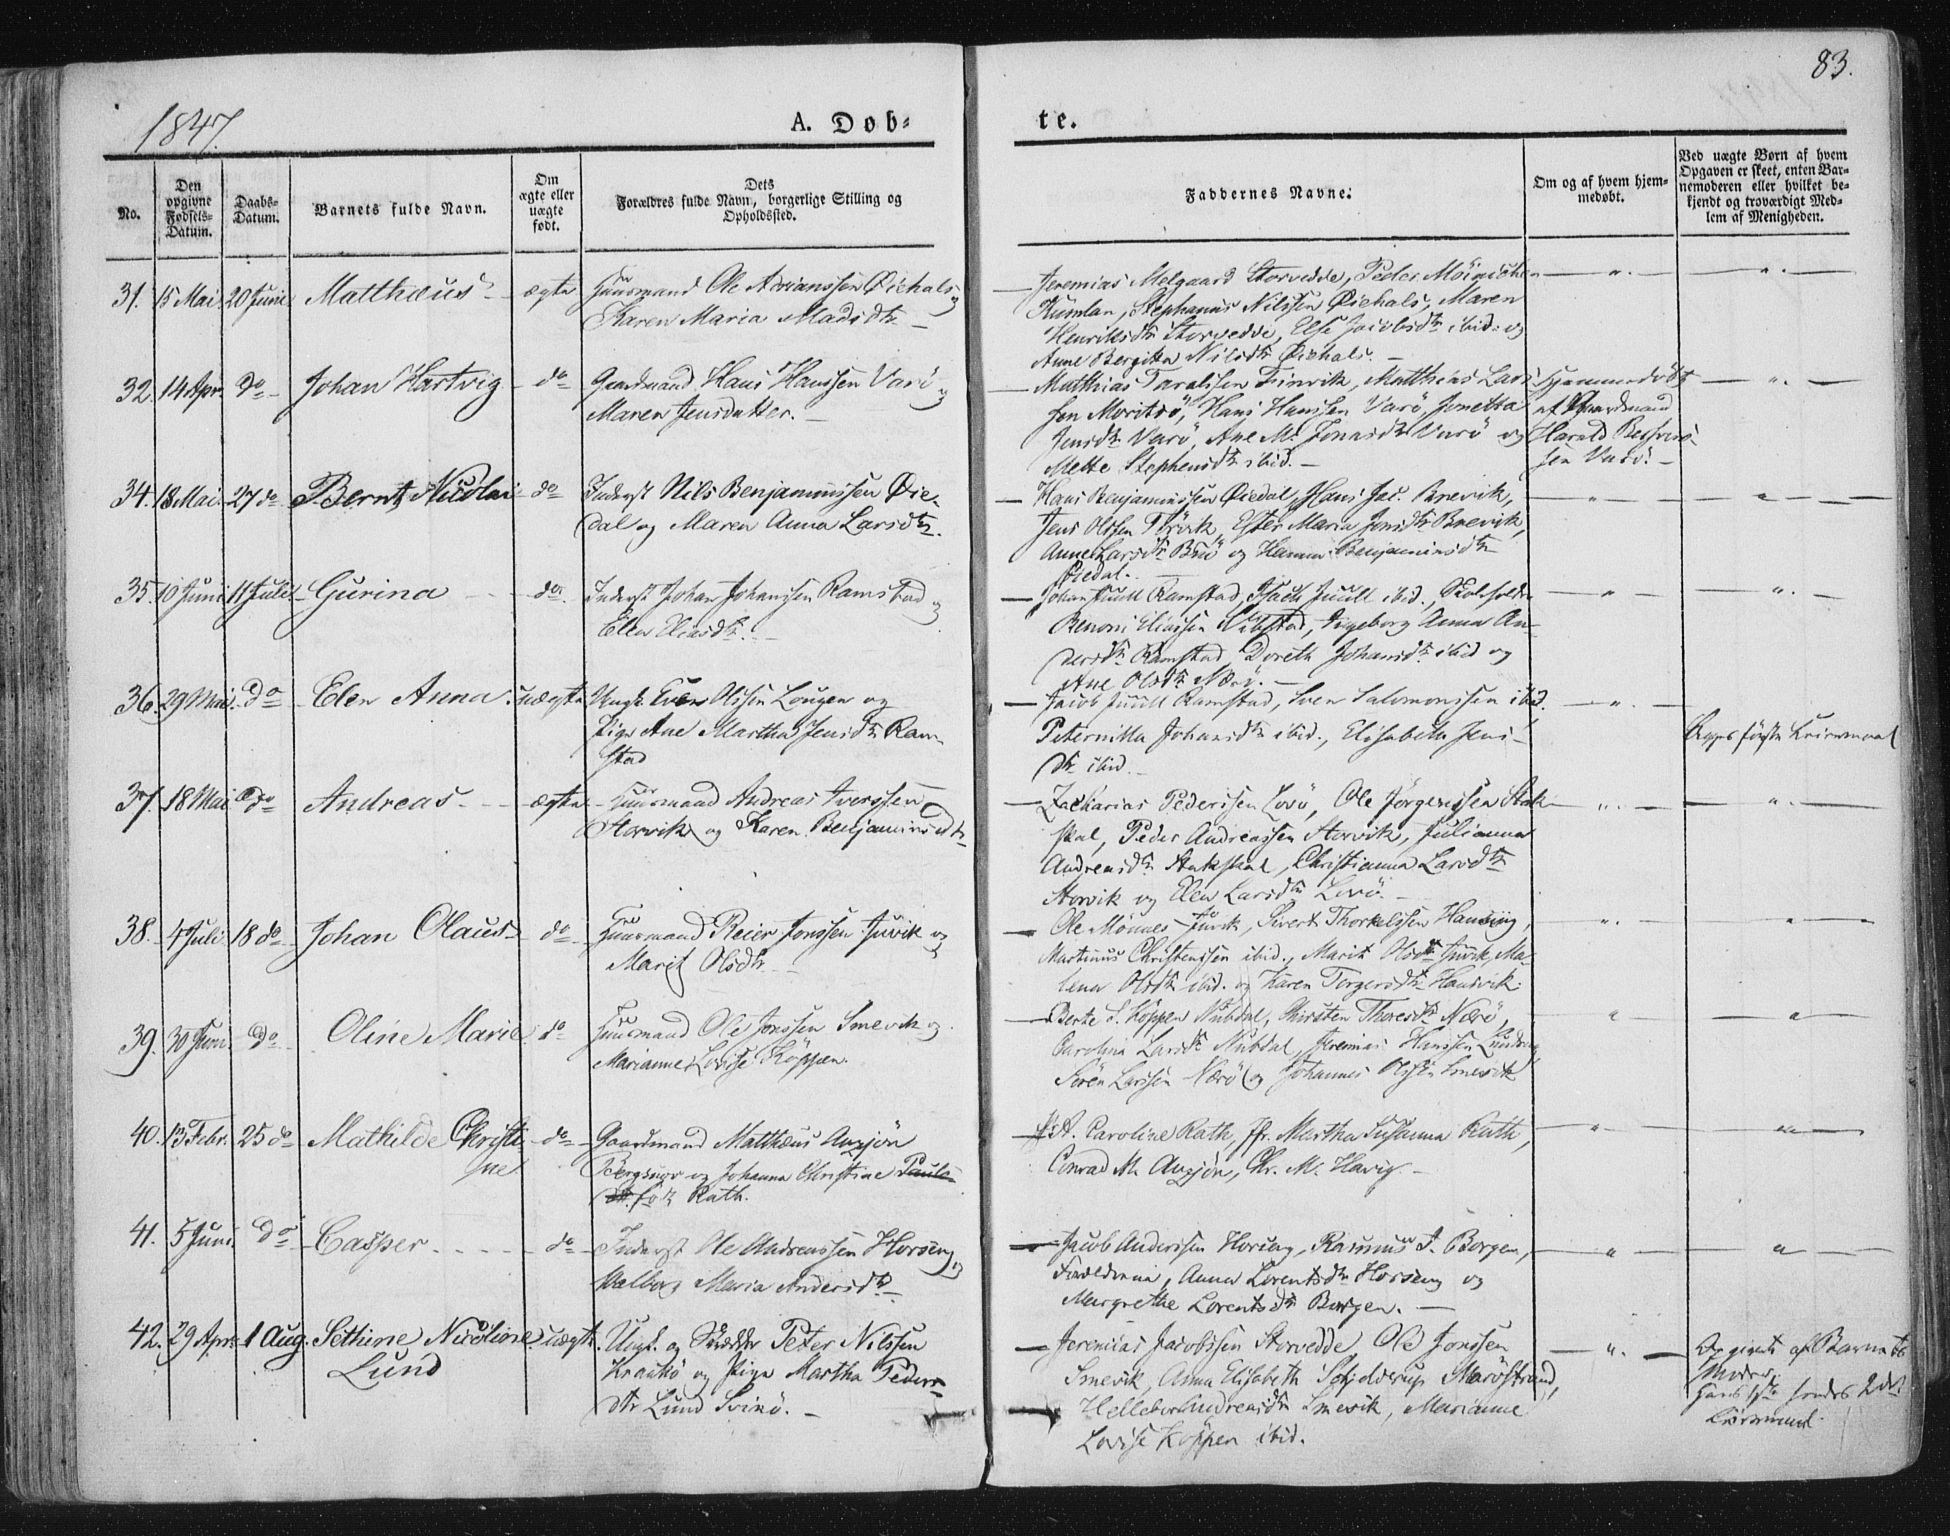 83.
1847.
A. Døb-
te.
No.
Den opgivne Fødsels-Datum.
Daabs-Datum.
Barnets fulde Navn.
Om ægte eller uægte født.
Dets Forældres fulde Navn, borgerlige Stilling og Opholdssted.
Faddernes Navne.
Om og af hvem hjem-medøbt.
Ved uægte Børn af hvem Opgaven er skeet, enten Bar-nemoderen eller hvilket be-kjendt og troværdigt Med-lem af Menigheden.
31. 15 Mai 20 Juni Matthæus ægte Huusmand Ole Adrianssen Øiehals og
Karen Maria Madsdtr
Jeremias Melgaard Storvedde, Peder
Stephanus Nilssen Øiehals, Maren
Henriksdtr Storvedde, Else Jacobsdtr ibid: og
Anne Bergitta Nilsdtr Øiehals.
32. 14 Apr. do Johan Hartvig do Gaardmand Hans Hanssen Varö og
Maren Jensdatter.
Matthias Taralssen Finvik, Matthias Lars-
sen Hans Hanssen Varö, Jonetta
Jensdtr Varö, Ane M. Jonasdtr Varö og
Mette Stephensdtr ibid.
Hjemmedöbt
af Gaardmand
Harald
sen Varö.
34. 18 Mai 27 do Bernt Nicolai do Inderst Nils Benjaminssen Øie-
dal og Maren Anna Larsdtr.
Hans Benjaminssen Øiedal, Hans Jac. Brevik,
Jens Olssen Ester Maria Jonsdtr Brevik,
Anne Larsdtr og Hanna Benjaminsdtr
Øiedal.
35. 10 Juni 11 Juli Gurina do Inderst Johan Johanssen Ramstad og
Elen Eliasdtr.
Johan Juull Ramstad, Isach Juull ibid., Skoleholder
Benoni Eliassen Ingeborg Anna An-
dersdtr Ramstad, Doreth Johansdtr ibid og
Ane Olsdtr
36. 29 Mai do Elen Anna uægte Ungk. Even Olssen Lougen og
Pige Ane Martha Jensdtr Ram-
stad
Jacob Juull Ramstad, Sven Salomonssen ibid.
Peternilla Johansdtr ibid., Elisabeth Jens-
dtr ibid.
Begges første Leiermaal
37. 18 Mai do Andreas ægte Huusmand Andreas Iverssen
Storvik og Karen Benjaminsdtr
Zacharias Pederssen Lovö, Ole Jörgenssen
Peder Andreassen Storvik, Julianna
Andreasdtr Christianna Larsdtr
Storvik og Elen Larsdtr Lovö.
38. 4 Juli 18 do Johan Olaus do Huusmand Reier Jonssen Juvik og
Marit Olsdtr
Ole Mönnes Juvik, Sivert Thorkelssen
Martinus Christenssen ibid., Marit Olsdtr Juvik, Ma-
lena Olsdtr ibid. og Karen Torgersdtr Hansvik.
39. 30 Juni do Oline Marie do Huusmand Ole Jonssen Smevik og
Marianne Lovise Köppen.
Berte S. Köppen Nubdal, Kirsten Thoresdtr Nærö,
Carolina Larsdtr Nubdal, Jeremias Hanssen
Sören Larssen Nærö og Johannes Olssen Smevik
40. 13 Febr. 25 do Mathilde Christi-
ne do Gaardmand Matthæus Anzjön
Bergsnov og Johanna Christine Pauls-
dtr. född Rath.
Caroline Rath, Jfr. Martha Susanna Rath,
Conrad M. Anzjön, Chr. M. Havig
41. 5 Juni do Casper do Inderst Ole Andreassen Horseng og
Valborg Maria Andersdtr
Jacob Anderssen Horseng, Rasmus J. Borgen,
Anna Lorentsdtr Horseng og
Margrethe Lorentsdtr Borgen.
42. 29 Apr. 1 Aug. Sethine Nicoline
Lund uægte Ungk. og Skrædder Peter Nilssen
Krankö og Pige Martha Peders-
dtr Lund Svinö.
Jeremias Jacobssen Storvedde, Ole Jonssen
Smevik, Anna Elisabeth Schjelderup Maröstrand,
Hellebor Andreasdtr Smevik, Marianne
Lovise Köppen ibid.
Opgivet af Barnets
Moder;
Hans 1ste hendes 2det
Leiermaal.